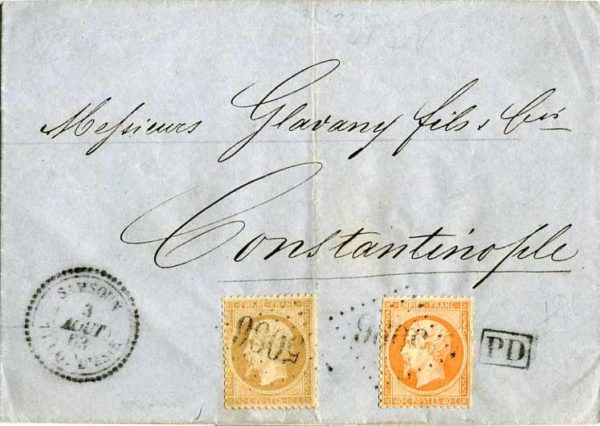 Messieurs Glavany fils & Cie
Constantinople
SAMSOUN
3
AOUT
TURQ. D'ASIE
EMPIRE FRANC
10 C POSTES 10 C
EMPIRE FRANC
40 C POSTES 40 C
PD